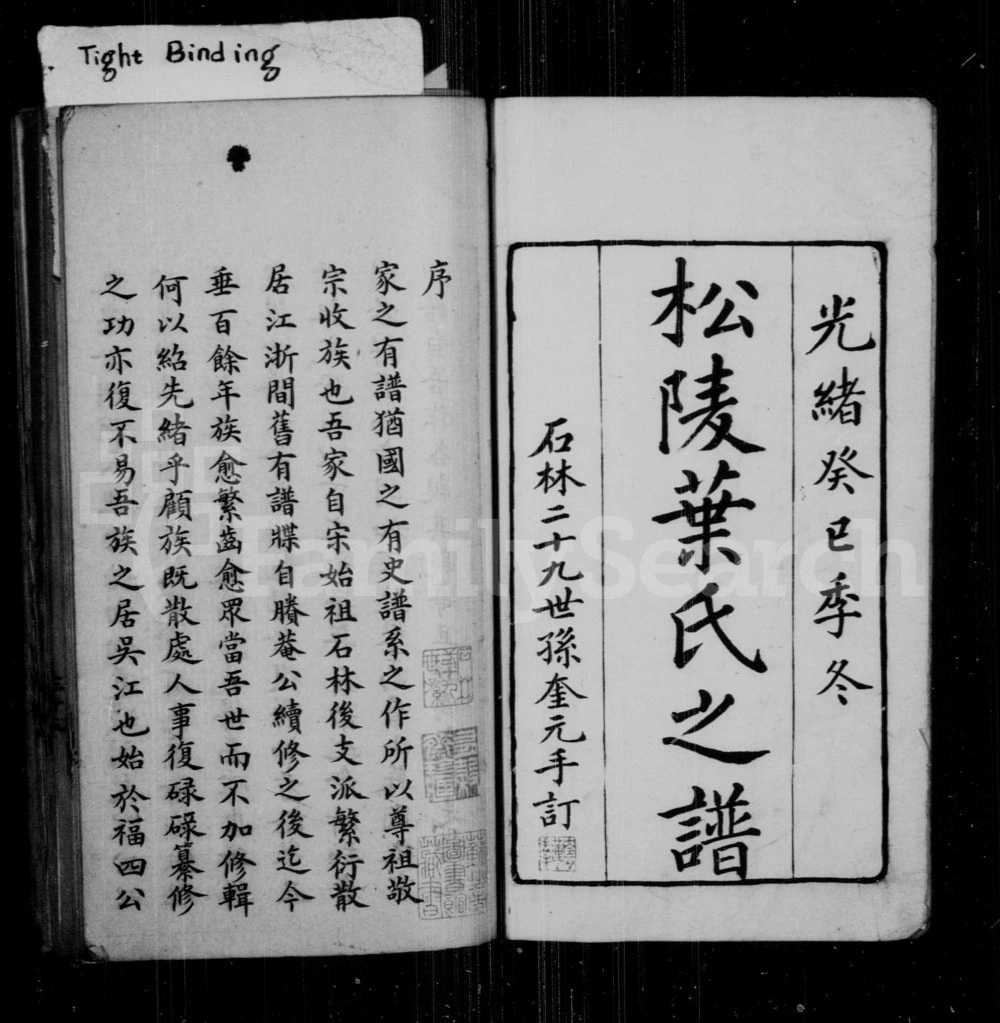 Tight Binding
光緒癸巳季冬
松陵葉氏之譜
石林二十九世孫奎元手訂
序
家之有譜猶國之有史譜系之作所以尊祖敬
宗收族也吾家自宋始祖石林後支派繁衍散
居江浙間舊有譜牒自賸菴公續修之後迄今
垂百餘年族愈繁齒愈眾當吾世而不加修輯
何以紹先緒乎顧族既散處人事復碌碌纂修
之功亦復不易吾族之居吳江也始於福四公
FamilySearch